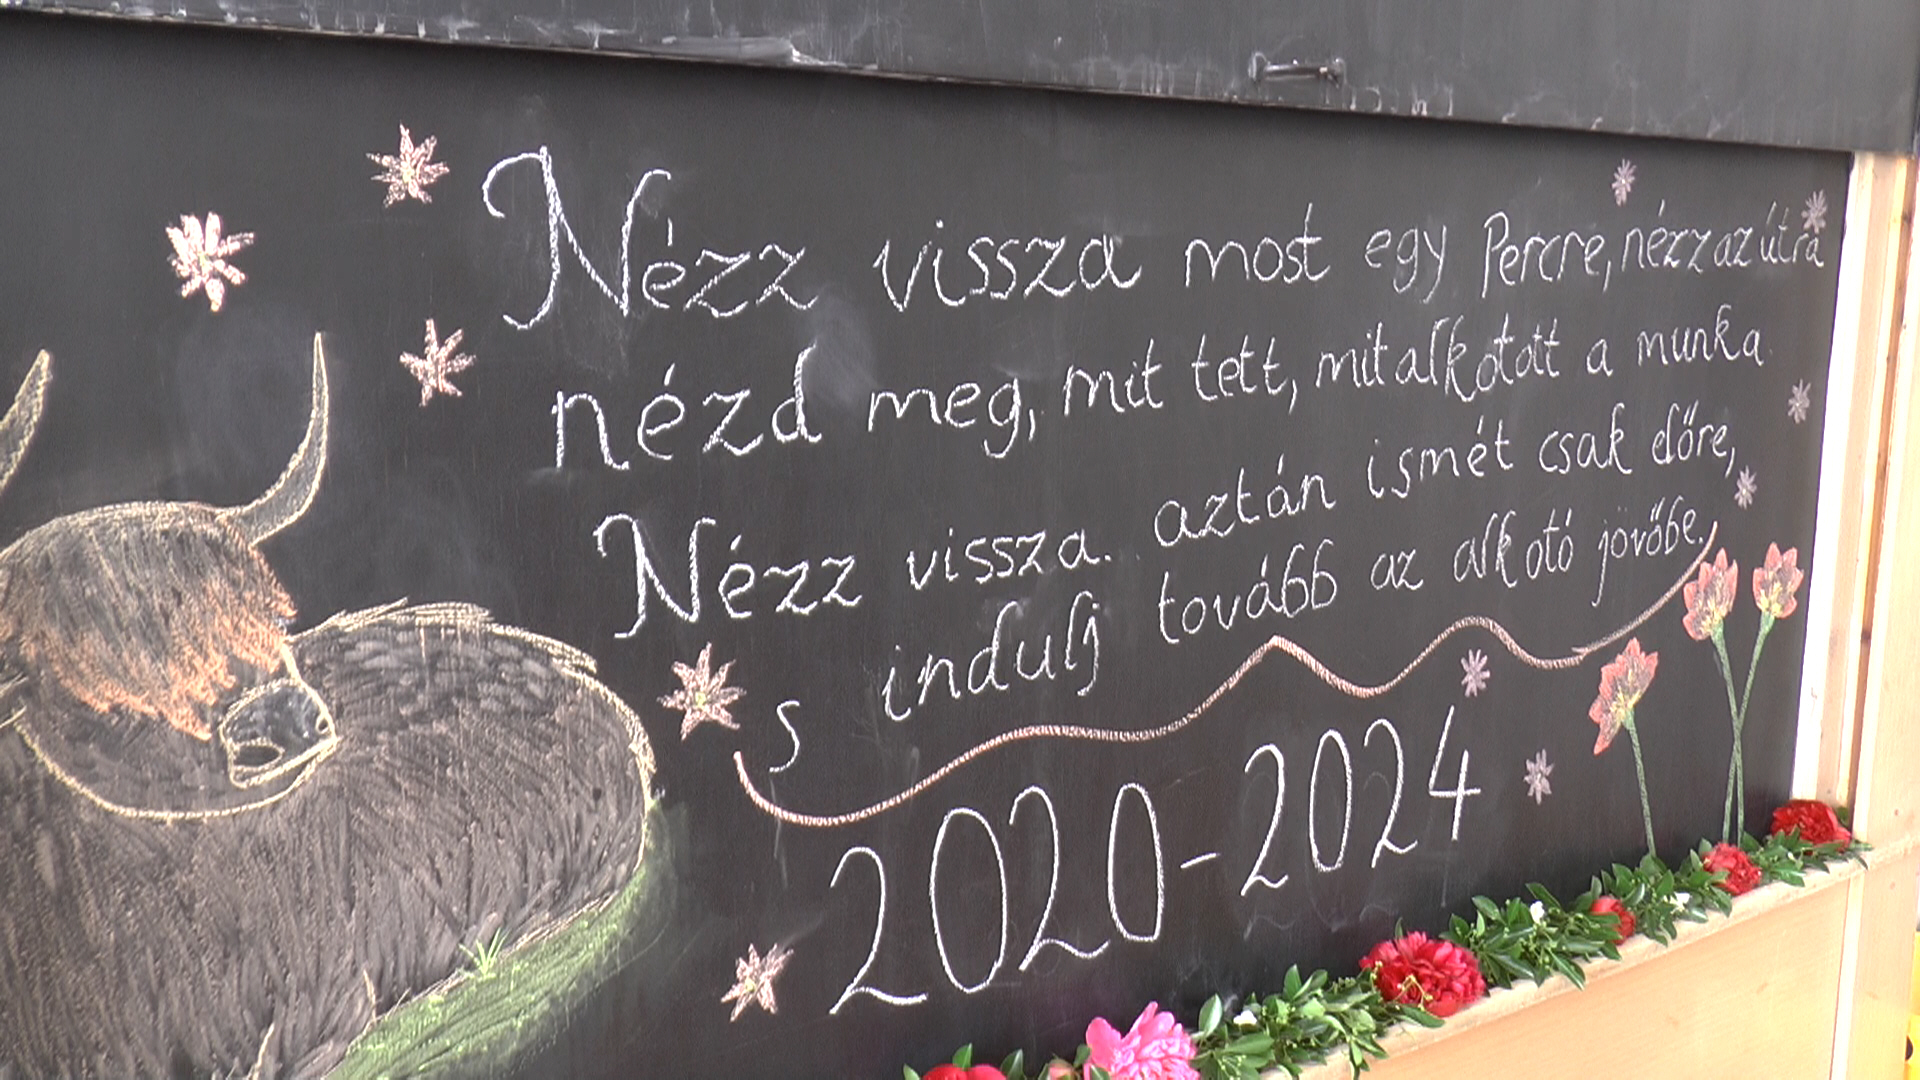 Nézz vissza most egy Percre, nézz az útra
nézd meg, mit tett, mit alkotott a munka
Nézz vissza. aztán ismét csak előre,
s indulj tovább az alkotó jövőbe.
2020-2024